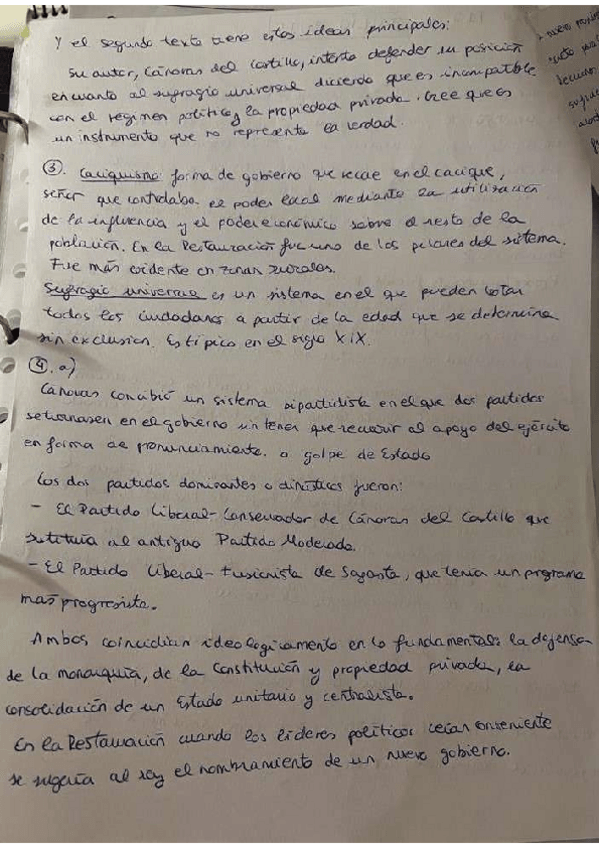 Y el segundo texto tiene estas ideas principales:
Su autor, Cánovas del Castillo, intenta defender su posición
en cuanto al sufragio universal diciendo que es incompatible
con el régimen político y la propiedad privada. Cree que es
un instrumento que no representa la verdad.
③. Caciquismo: forma de gobierno que recae en el cacique,
señor que controlaba el poder local mediante la utilización
de la influencia y el poder económico sobre el resto de la
población. En la Restauración fue uno de los pilares del sistema.
Fue más evidente en zonas rurales.
Sufragio universal es un sistema en el que pueden votar
todos los ciudadanos a partir de la edad que se determina
sin exclusión. Es típico en el siglo XIX.
④. a)
Cánovas concibió un sistema bipartidista en el que dos partidos
se turnasen en el gobierno sin tener que recurrir al apoyo del ejército
en forma de pronunciamiento. o golpe de Estado
Los dos partidos dominantes o dinásticos fueron:
- El Partido Liberal-Conservador de Cánovas del Castillo que
sustituía al antiguo Partido Moderado.
- El Partido Liberal-Fusionista de Sagasta, que tenía un programa
más progresista.
Ambos coincidían ideológicamente en lo fundamental: la defensa
de la monarquía, de la Constitución y propiedad privada, la
consolidación de un Estado unitario y centralista.
En la Restauración cuando los líderes políticos veían conveniente
se sugería al rey el nombramiento de un nuevo gobierno.